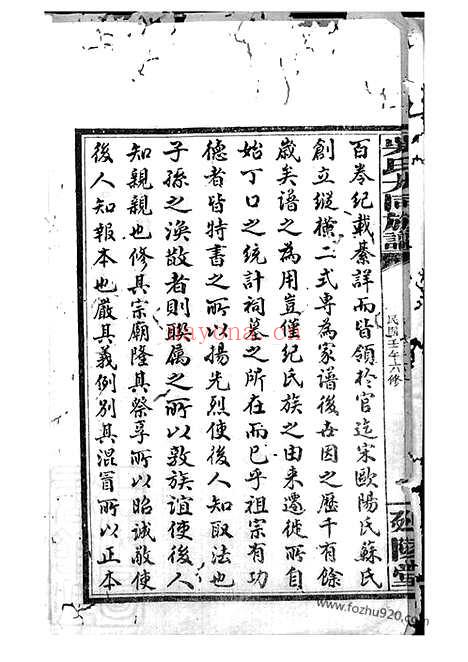 百卷紀載綦詳而皆領於官迄宋歐陽氏蘇氏
創立縱橫二式專為家譜後世因之歷千有餘
歲矣譜之為用豈僅紀氏族之由来遷徙所自
始丁口之統計祠墓之所在而已乎祖宗有功
德者皆特書之所以揚先烈使後人知取法也
子孫之渙散者則聯属之所以敦族誼使後人
知親親也修其宗廟隆其祭享所以昭誠敬使
後人知報本也嚴其義例別其混冒所以正本
吳氏大同族譜
民國壬午六修
dayouna.com
www.fozhu920.com